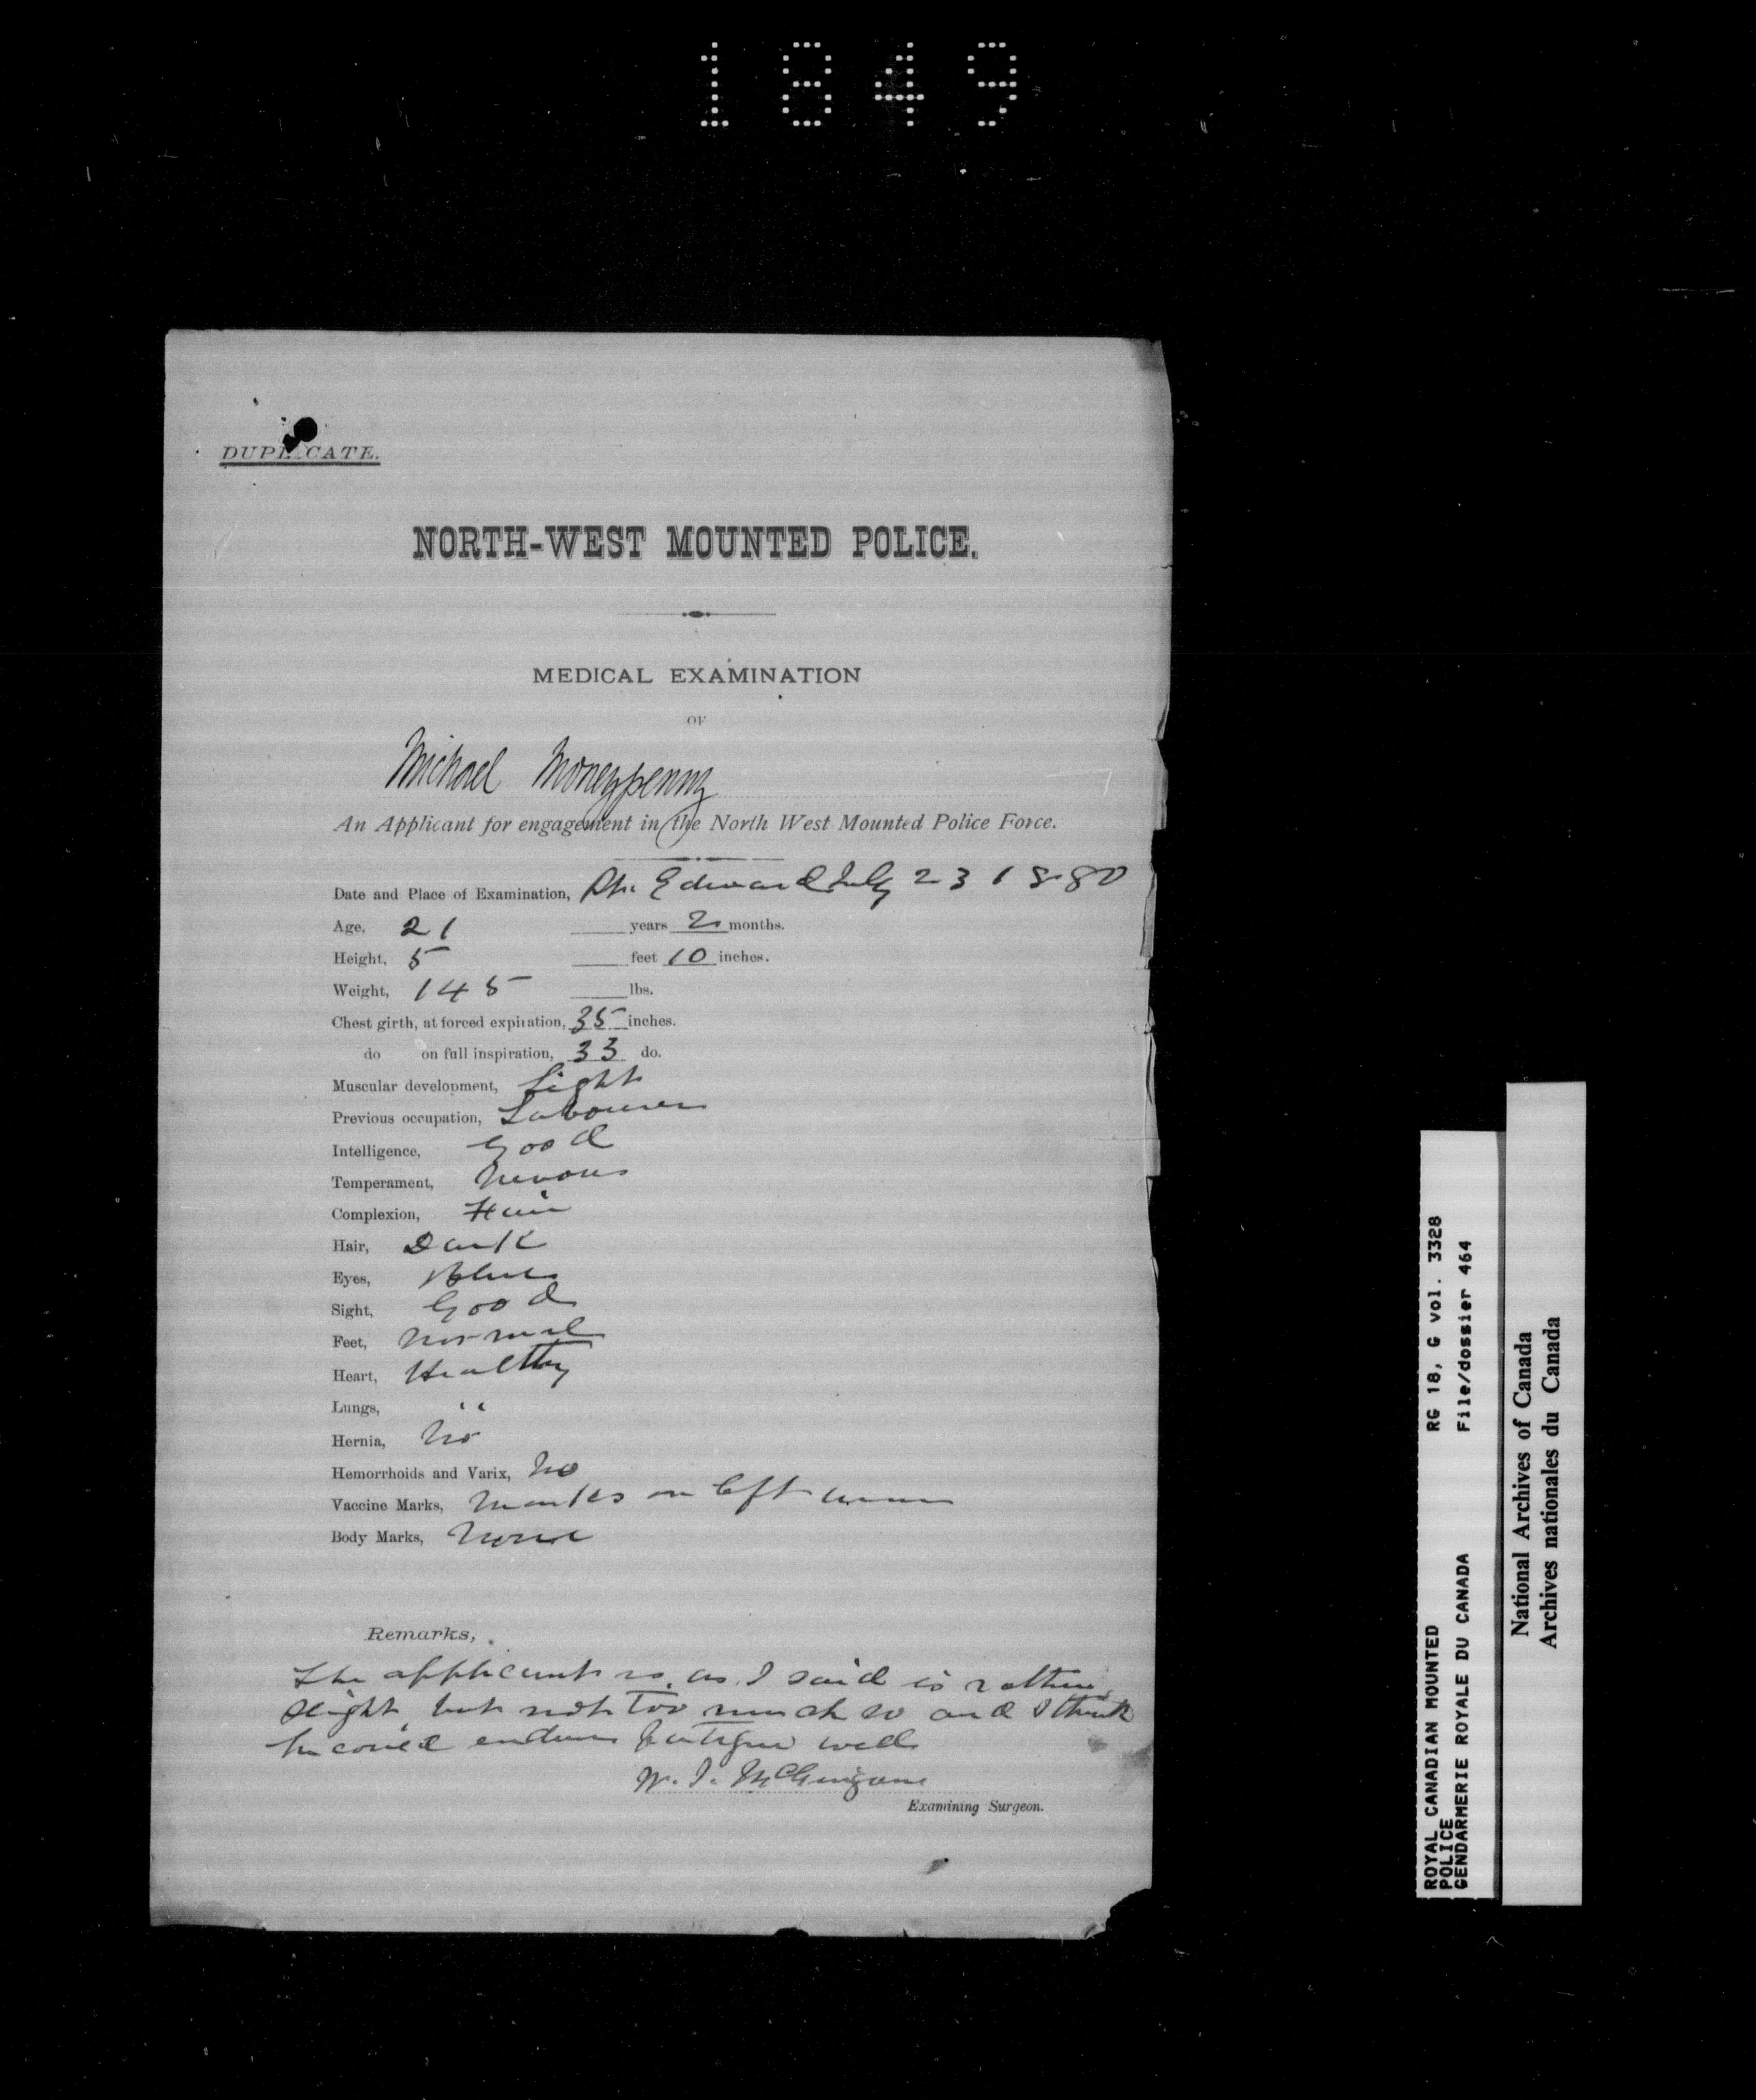 1849
DUPLICATE.
NORTH-WEST MOUNTED POLICE.
MEDICAL EXAMINATION
OF
Michael Moneypenny
An Applicant for engagement in the North West Mounted Police Force.
Date and Place of Examination, Edward July 23 1880
Age, 21 years 2 months.
Height, 5 feet 10 inches.
Weight, 145 lbs.
Chest girth, at forced expiration, 35 inches.
do on full inspiration, 33 do.
Muscular development, Light
Previous occupation, Labourer
Intelligence, Good
Temperament, Nervous
Complexion, Fair
Hair, Dark
Eyes, Blue
Sight, Good
Feet, Normal
Heart, Healthy
Lungs, "
Hernia, No
Hemorrhoids and Varix, No
Vaccine Marks, Marks on left arm
Body Marks, None
Remarks,
The applicant is as I said is rather
slight but not too much so and I think
he could endure fatigue well
W. J.
Examining Surgeon.
ROYAL CANADIAN MOUNTED POLICE
GENDARMERIE ROYALE DU CANADA
RG 18, G vol. 3328
File/dossier 464
National Archives of Canada
Archives nationales du Canada